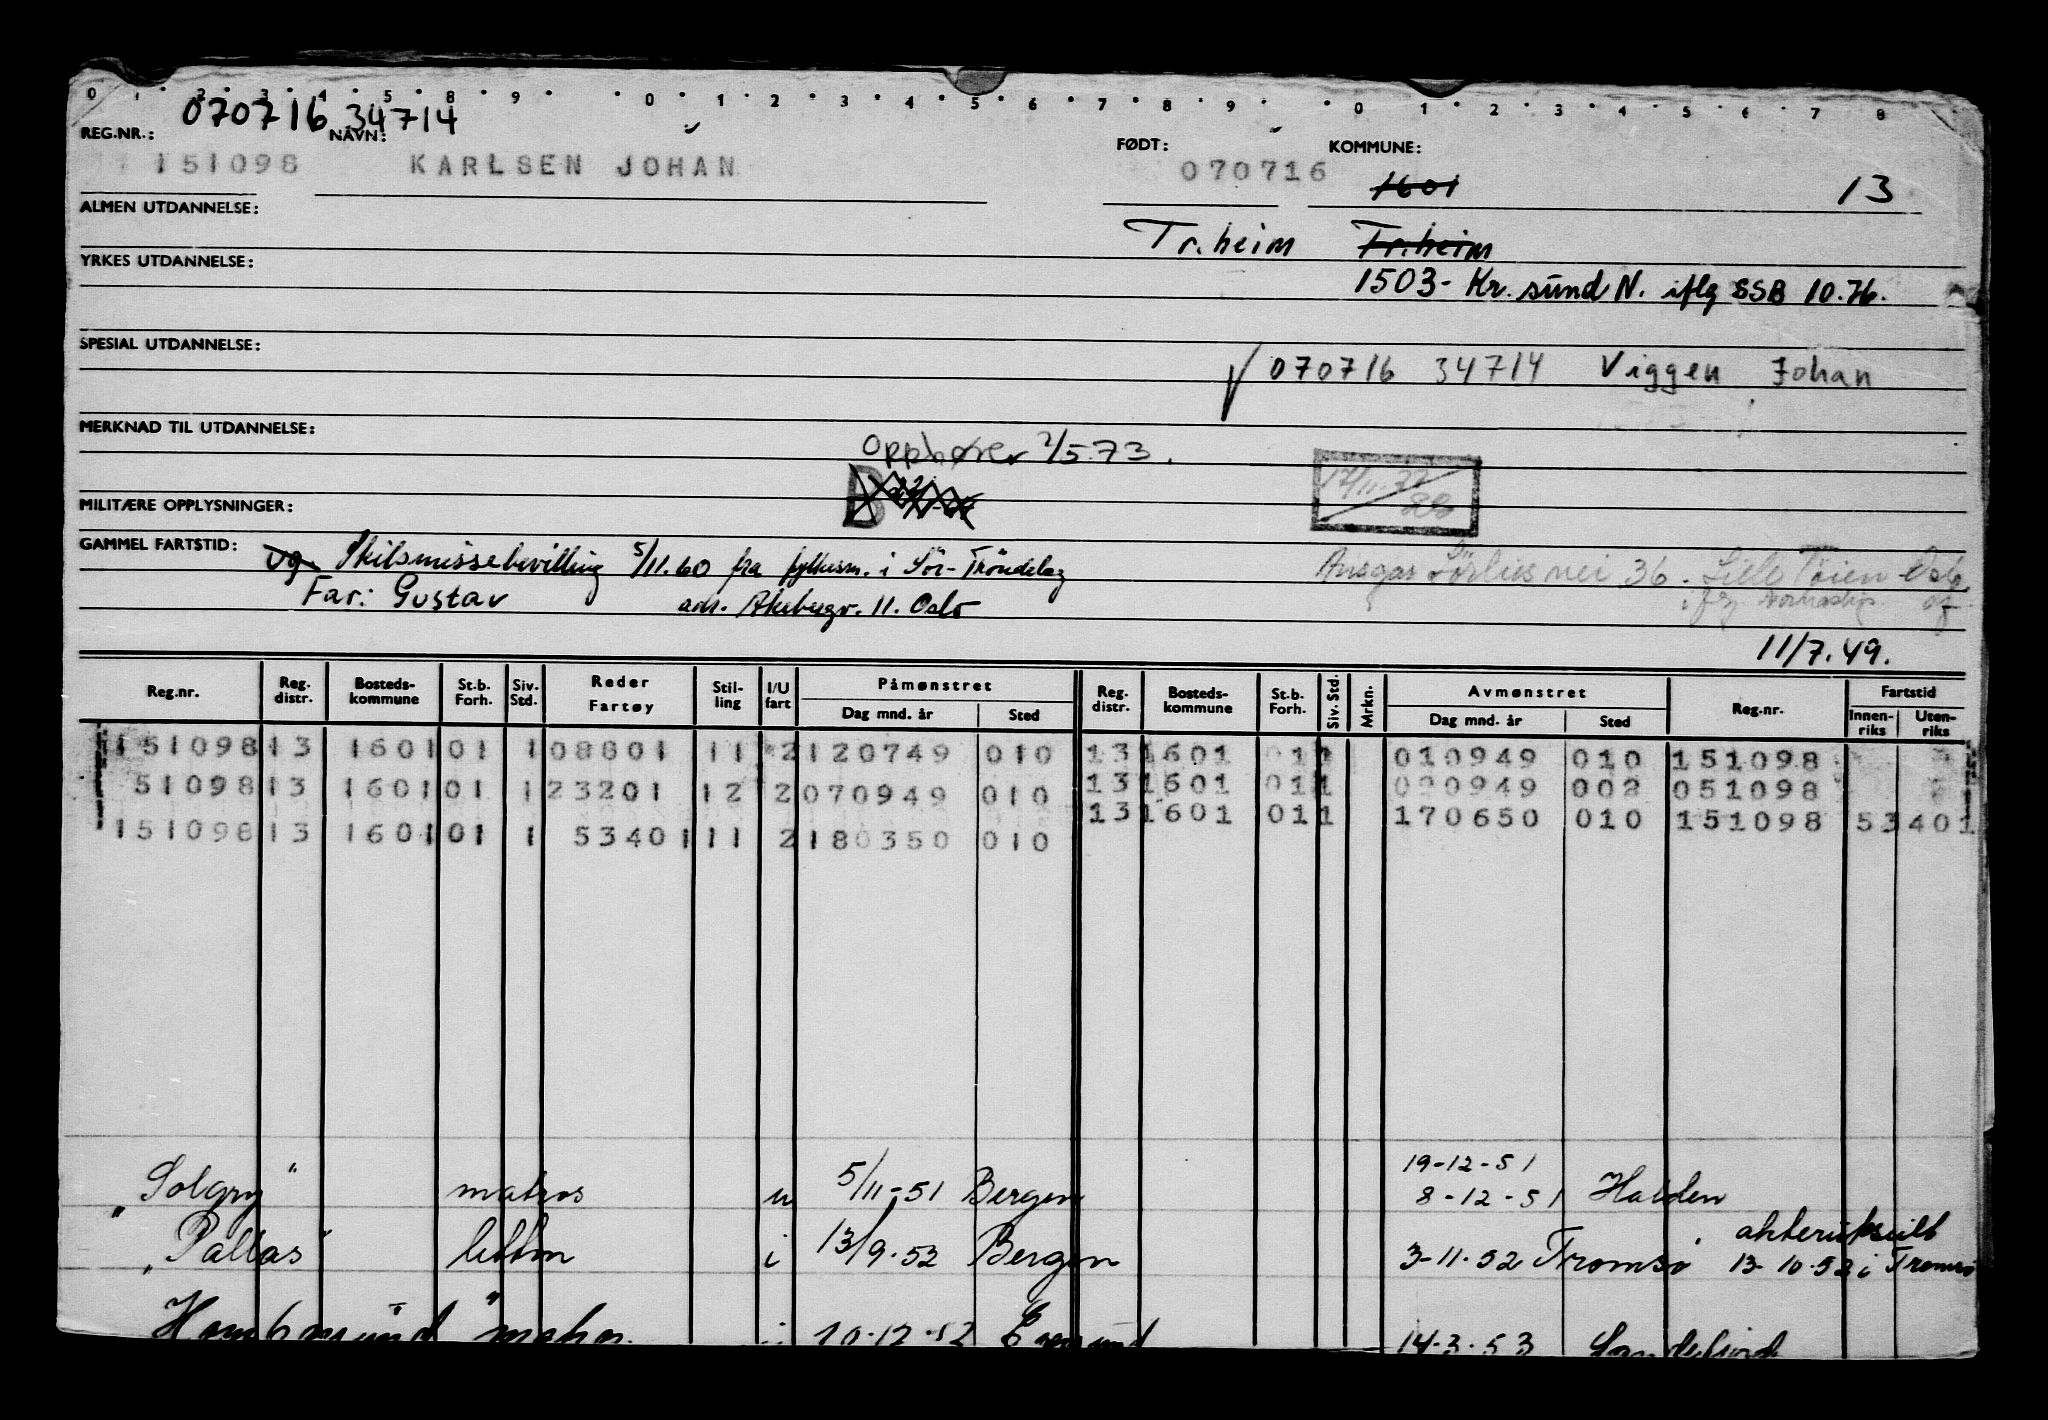 0 1 2 3 4 5 8 9 0 1 2 3 4 5 6 7 8 9 0 1 2 3 4 5 6 7 8
070716 34714
REG.NR.: NAVN: FØDT: KOMMUNE:
151098 KARLSEN JOHAN 070716 1601 13
ALMEN UTDANNELSE:
Tr.heim Tr.heim
YRKES UTDANNELSE:
1503- Kr.sund N. iflg SSB 10.76.
SPESIAL UTDANNELSE:
070716 34714 Viggen Johan
MERKNAD TIL UTDANNELSE:
Opphører 2/5.73.
B
MILITÆRE OPPLYSNINGER:
17/11.77
GAMMEL FARTSTID:
Skilsmissebevilling 5/11.60 fra fylkesm. i Sör-Tröndelag
Ansgar Sörlies vei 36. Lille Töien Oslo
Far: Gustav adr. Akebergv. 11. Oslo
11/7.49.
Reg.nr. Reg. distr. Bosteds-kommune St.b. Forh. Siv. Std. Reder Fartøy Stil-ling I/U fart Påmønstret Dag mnd. år Sted Reg. distr. Bosteds-kommune St.b. Forh. Siv. Std. Mrkn. Avmønstret Dag mnd. år Sted Reg.nr. Fartstid Innen-riks Uten-riks
151098 13 1601 01 1 08801 11 2 120749 010 13 1601 01 1 010949 010 151098
51098 13 1601 01 1 23201 12 2 070949 010 13 1601 01 1 020949 002 051098
151098 13 1601 01 1 53401 11 2 180350 010 13 1601 01 1 170650 010 151098 53401
19-12-51
"Solgry" matros u 5/11-51 Bergen 8-12-51 Halden
"Pallas" lettm i 13/9.52 Bergen 3-11.52 Tromsö akterutseilt 13-10.52 i Tromsö
Homborsund" i 10.12.52 Egersund 14.3.53 Sandefjord